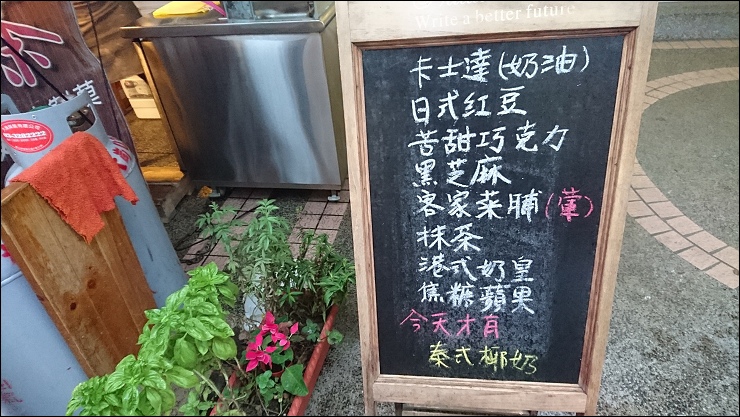 Write a better future
卡士達(奶油)
日式紅豆
苦甜巧克力
黑芝麻
客家菜脯(葷)
抹茶
港式奶皇
焦糖蘋果
今天才有
泰式椰奶